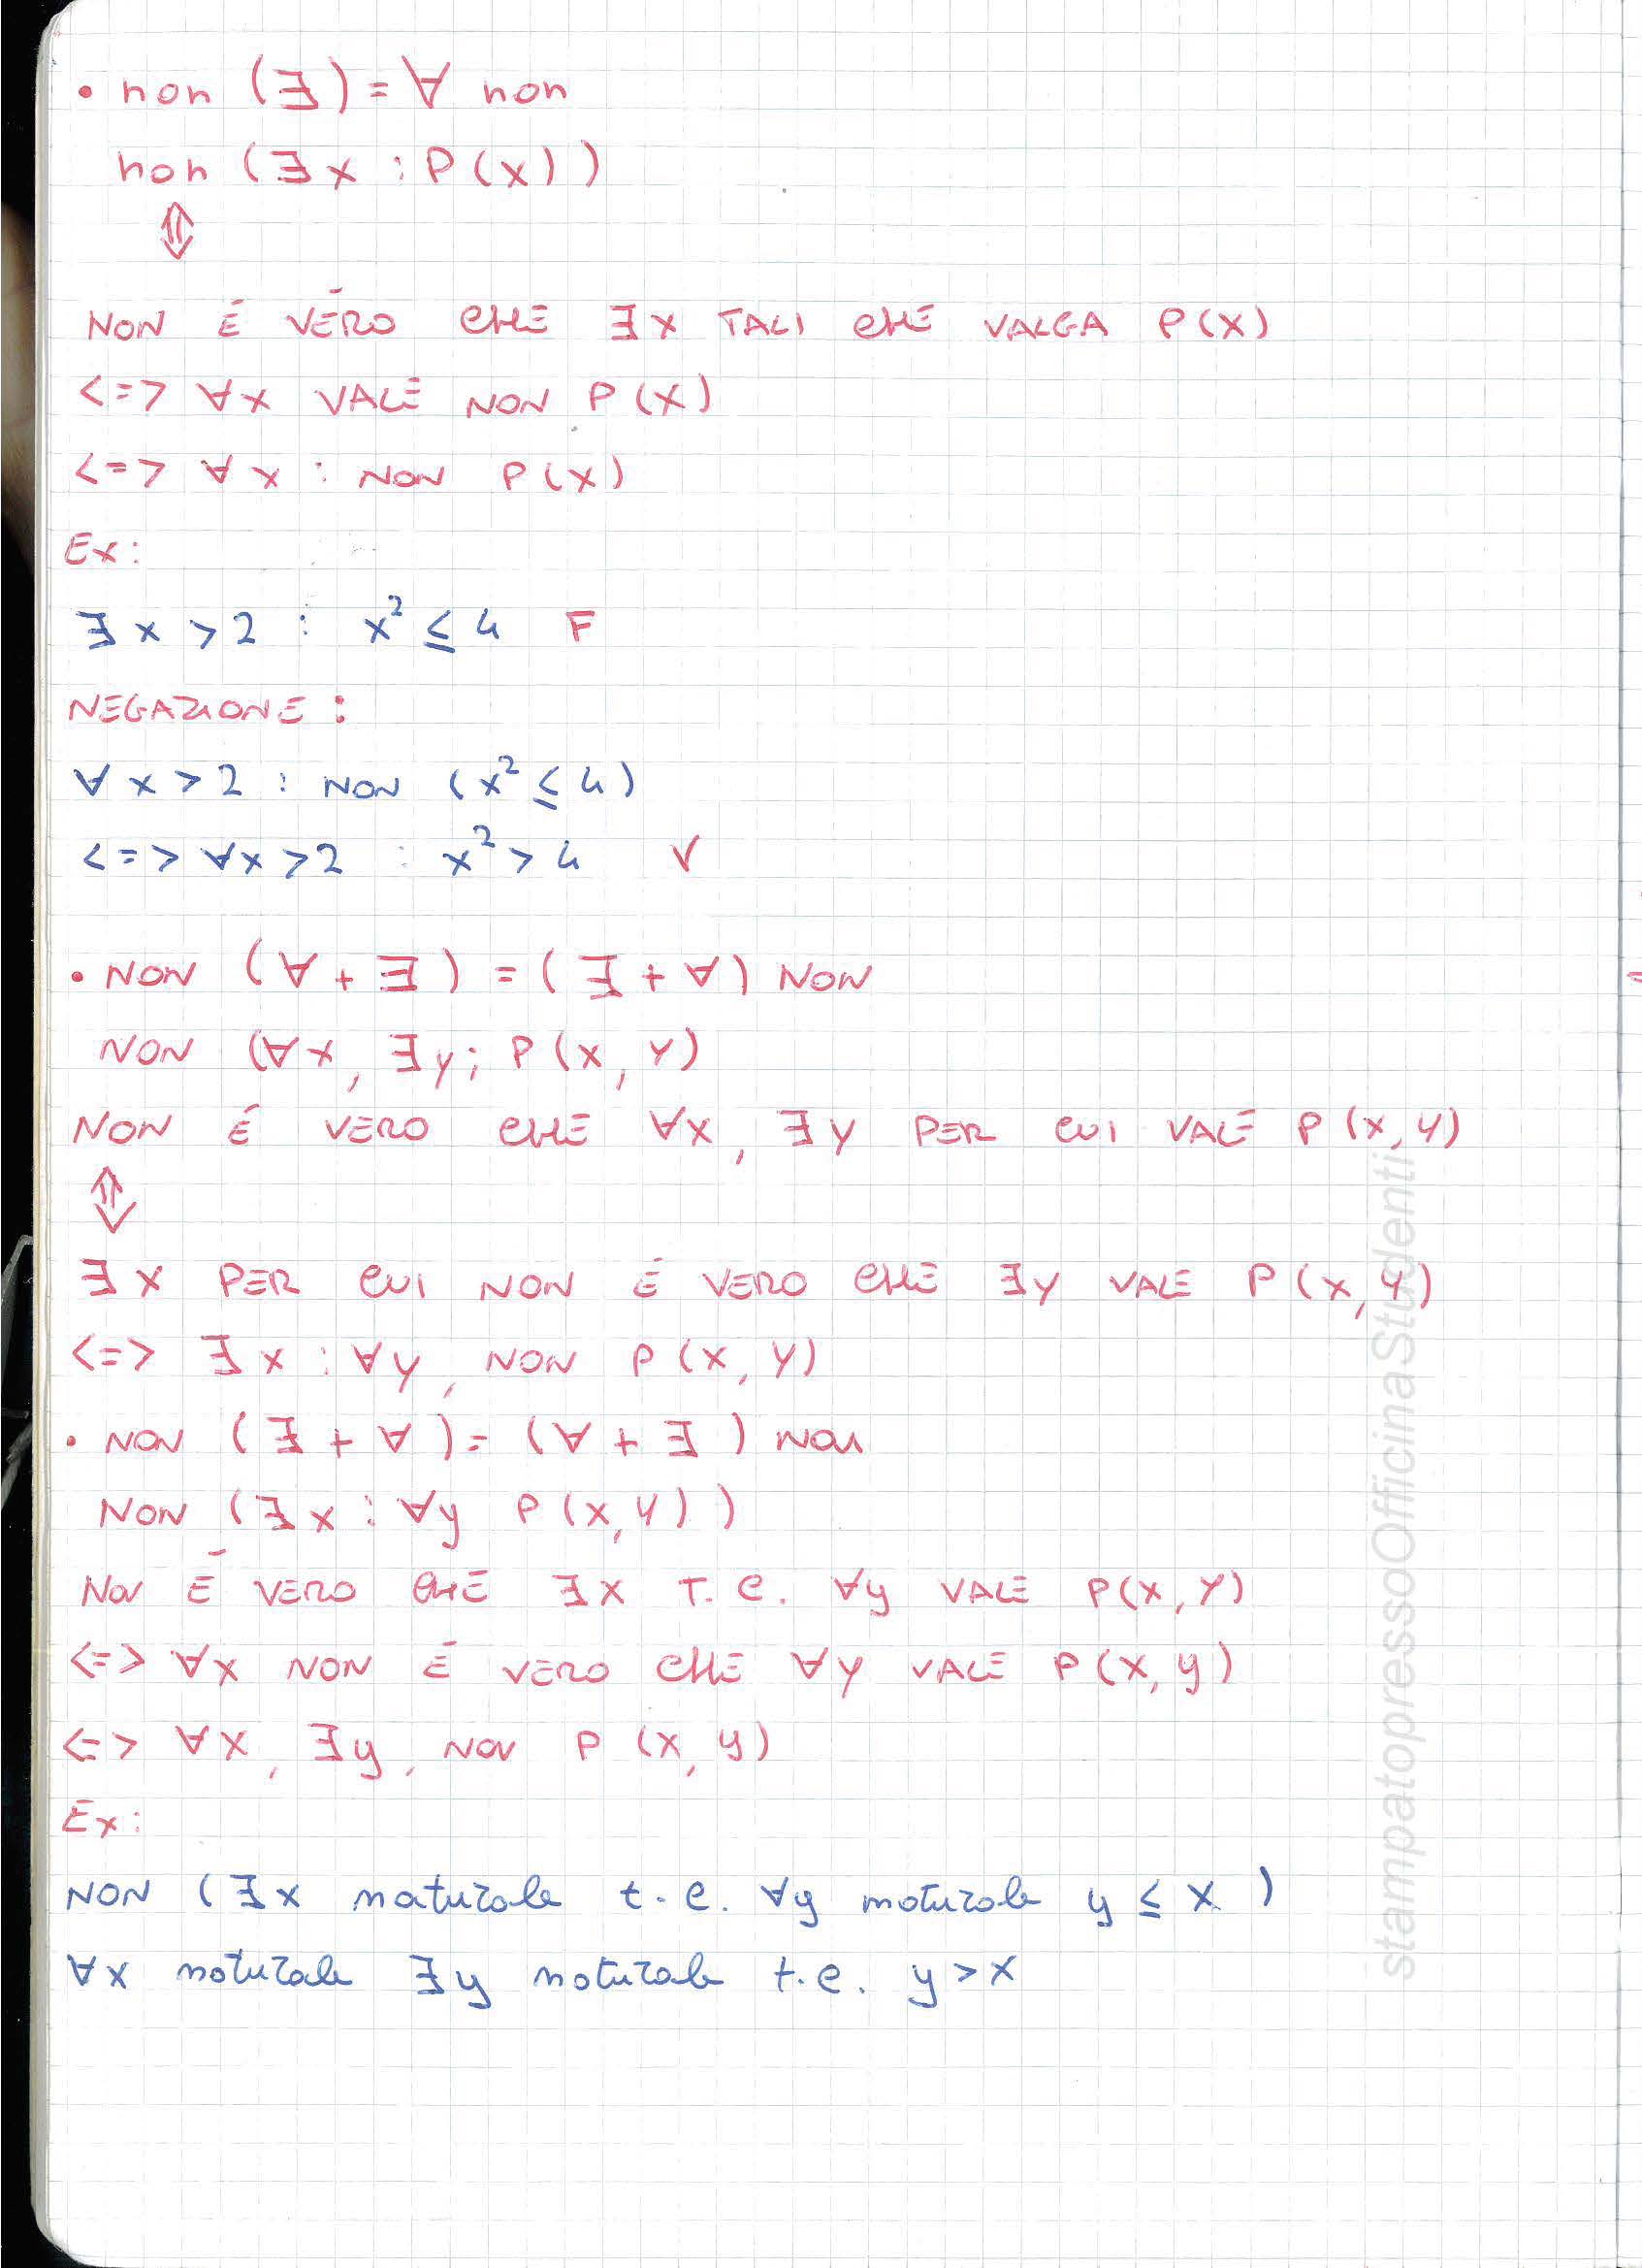 • non (∃) = ∀ non
non (∃x : P(x))
⇕
NON É VERO CHE ∃x TALI CHE VALGA P(X)
<=> ∀x VALE NON P(X)
<=> ∀x : NON P(X)
Ex:
∃x > 2 : x² ≤ 4 F
NEGAZIONE :
∀x > 2 : NON (x² ≤ 4)
<=> ∀x > 2 : x² > 4 V
• NON (∀ + ∃) = (∃ + ∀) NON
NON (∀x, ∃y; P(x, y)
NON É VERO CHE ∀x, ∃y PER CUI VALE P(x, y)
⇕
∃x PER CUI NON É VERO CHE ∃y VALE P(x, y)
<=> ∃x : ∀y, NON P(x, y)
• NON (∃ + ∀) = (∀ + ∃) NON
NON (∃x : ∀y P(x, y))
NON É VERO CHE ∃x T.C. ∀y VALE P(x, y)
<=> ∀x NON É VERO CHE ∀y VALE P(x, y)
<=> ∀x, ∃y, NON P(x, y)
Ex:
NON (∃x naturale t.c. ∀y naturale y ≤ x)
∀x naturale ∃y naturale t.c. y > x
stampatopressoOfficinaStudenti